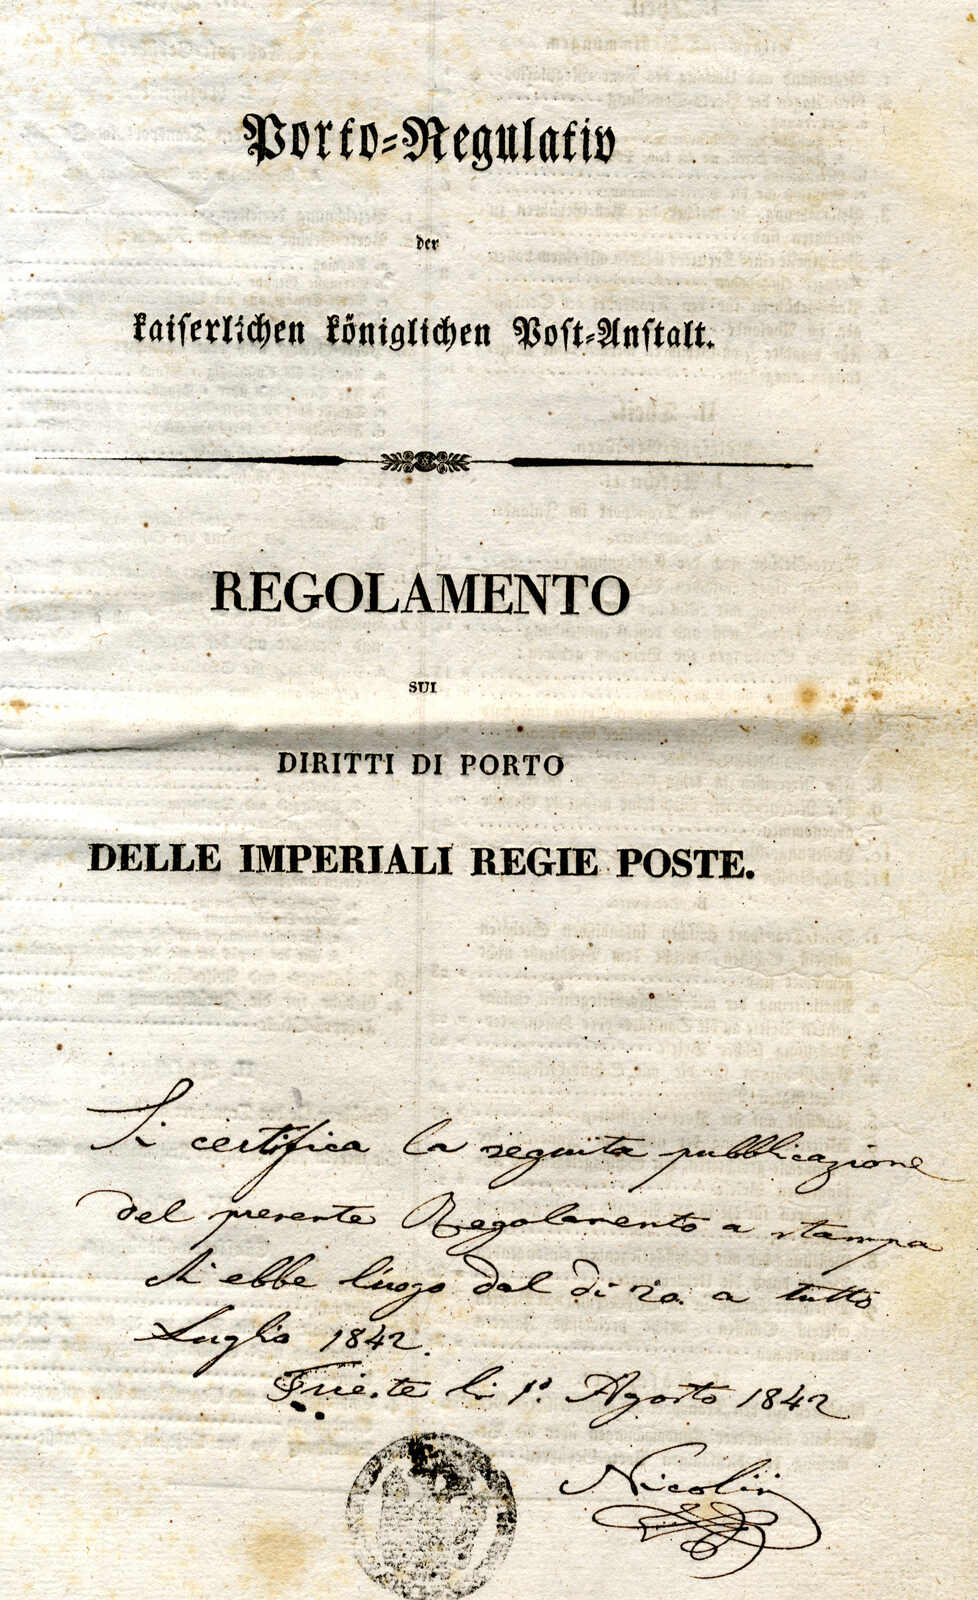 Porto-Regulativ
der
kaiserlichen königlichen Post-Anstalt.
REGOLAMENTO
SUI
DIRITTI DI PORTO
DELLE IMPERIALI REGIE POSTE.
Si certifica la seguita pubblicazione
del presente Regolamento a stampa
ebbe luogo dal di 20. a tutto
Luglio 1842.
Trieste li 1º. Agosto 1842